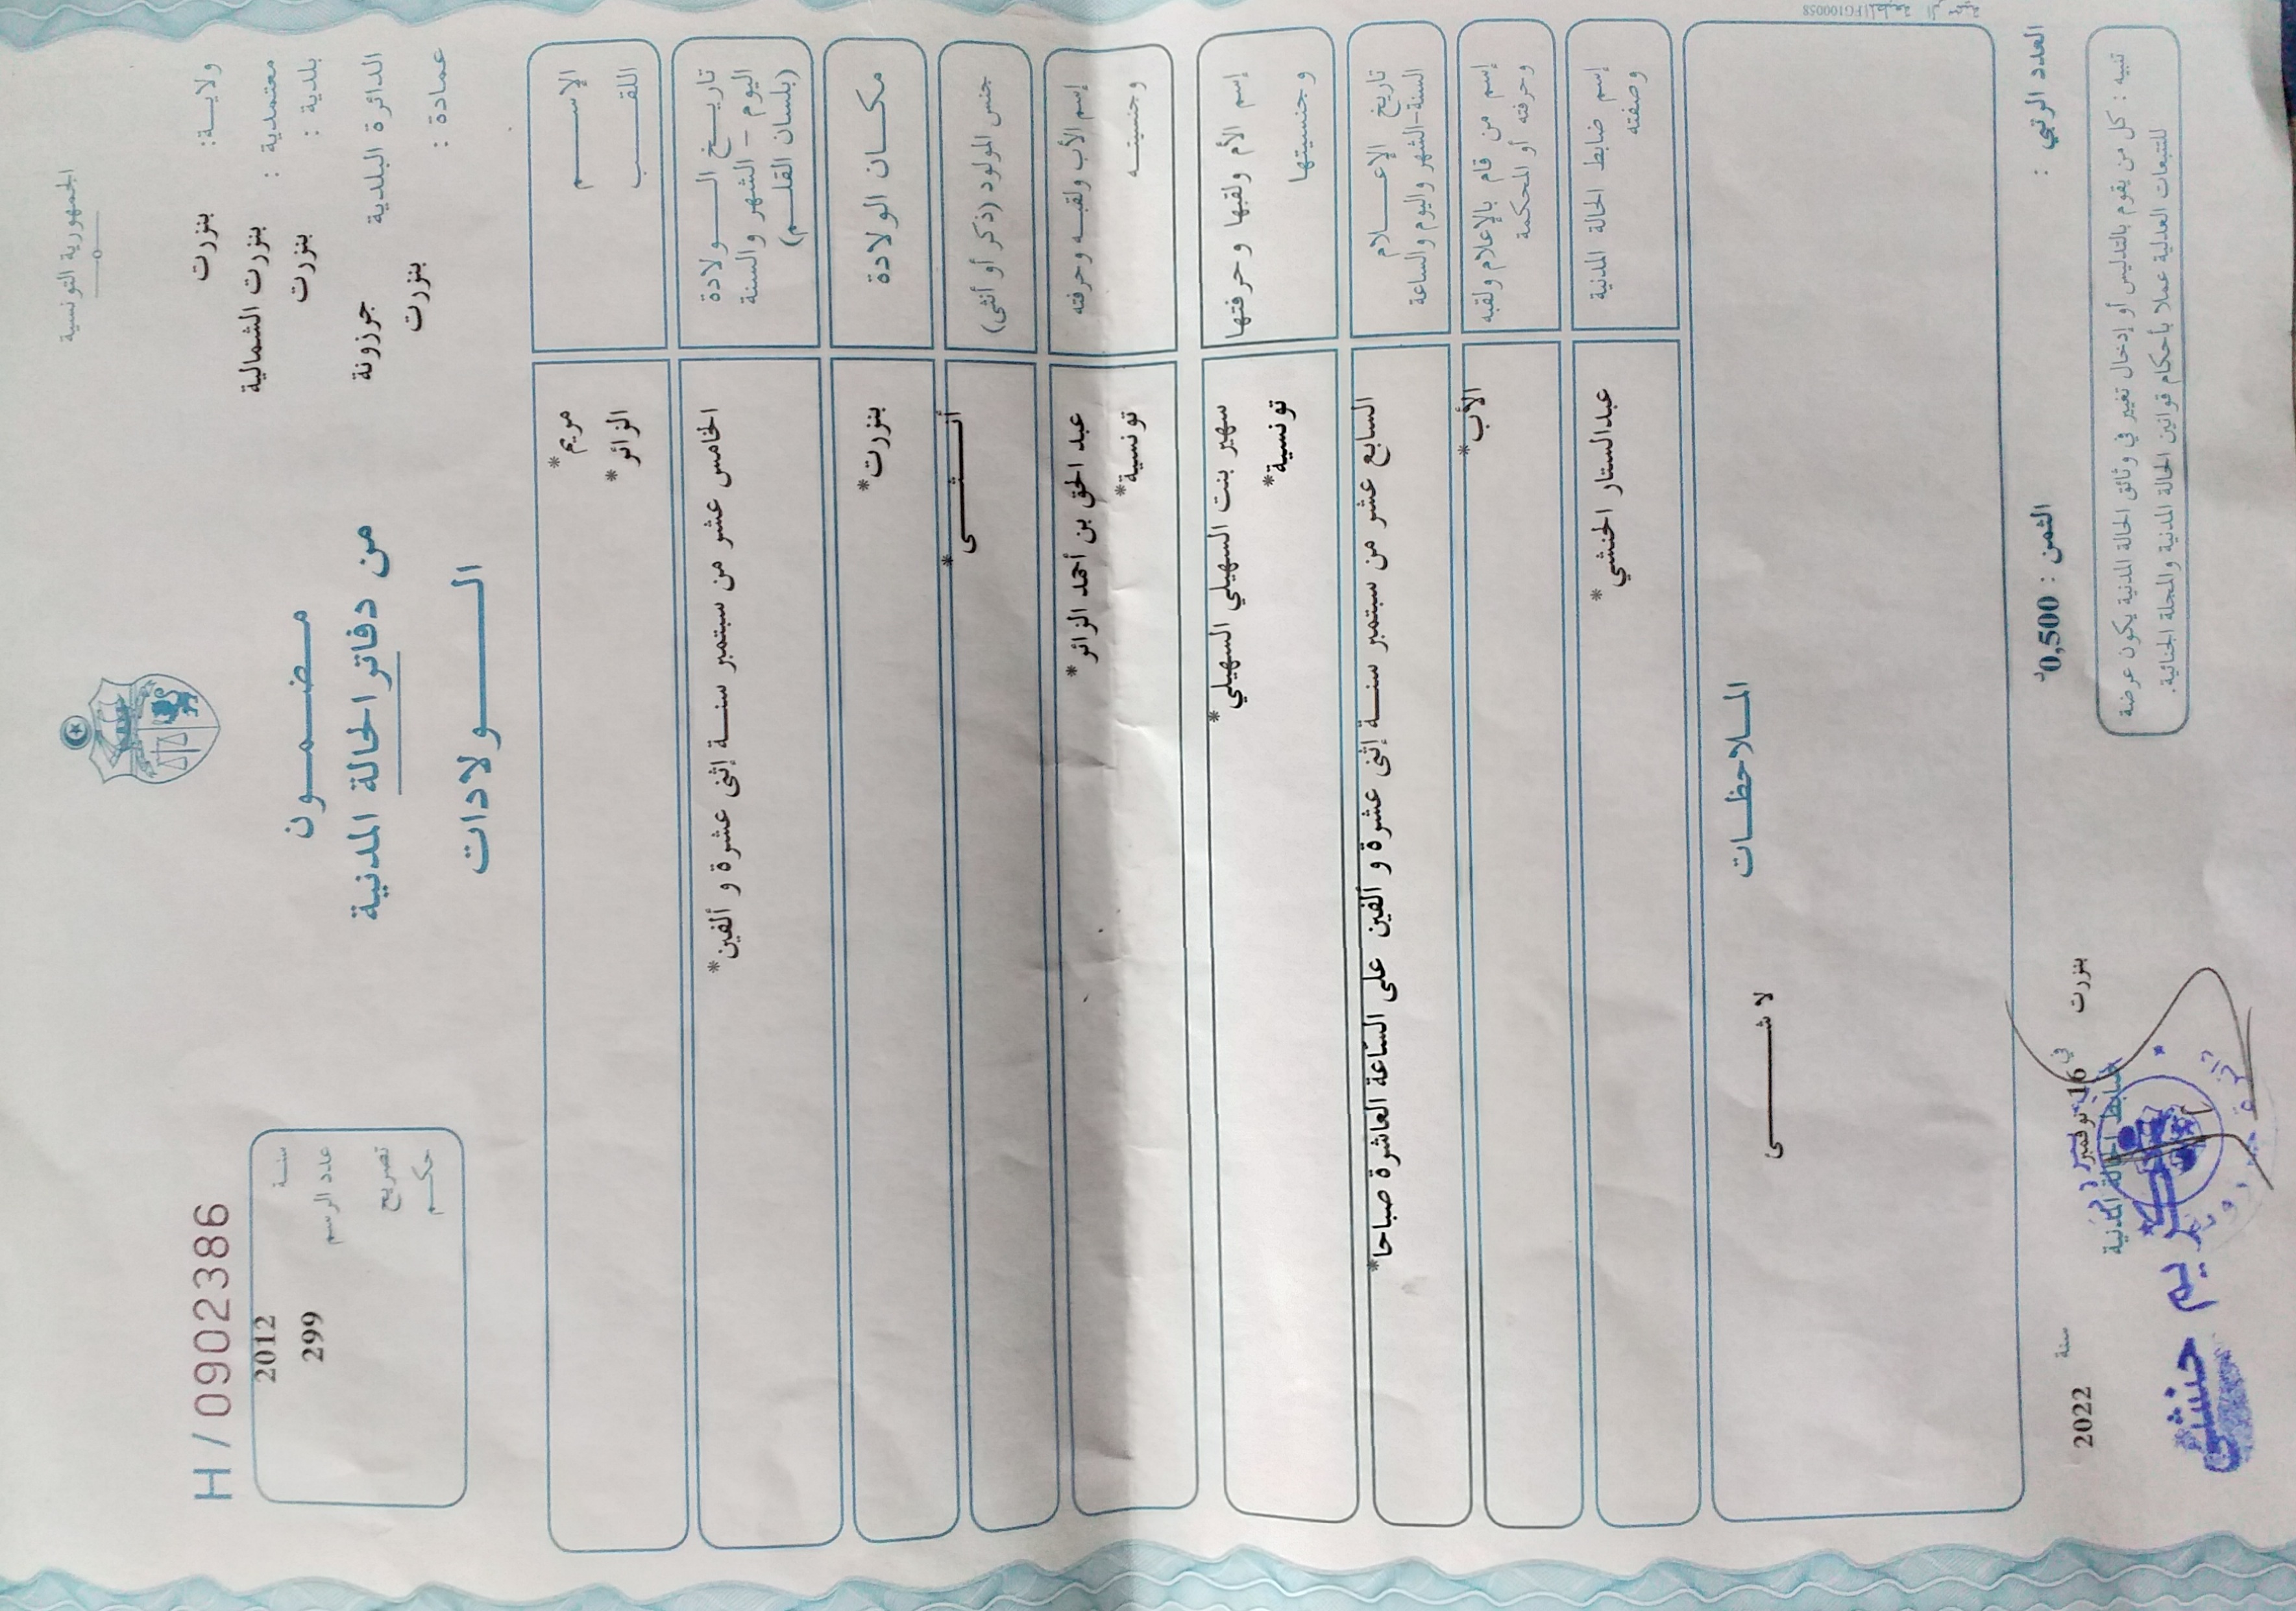 الجمهورية التونسية
H / 0902386
ولايـة: بنزرت
معتمدية : بنزرت الشمالية
بلدية : بنزرت
الدائرة البلدية جرزونة
عمادة : بنزرت
سنـة 2012
عدد الرسم 299
تصريح
حكـم
مـضـمـون
من دفاتر الحالة المدنية
الـولادات
الإسـم مريم*
اللقـب الزائر*
تاريـخ الـولادة
اليوم - الشهر والسنة
(بلسان القلـم)
الخامس عشر من سبتمبر سنـة إثنى عشرة و ألفين*
مكـان الولادة بنزرت*
جنس المولود (ذكر أو أنثى) أنـثـى*
إسم الأب ولقبـه وحرفته عبد الحق بن أحمد الزائر*
وجنسيتـه تونسية*
إسم الأم ولقبها وحرفتها سهير بنت السهيلي السهيلي*
وجنسيتها تونسية*
تاريخ الإعـلام
السنة-الشهر واليوم والساعة
السابع عشر من سبتمبر سنـة إثنى عشرة و ألفين على الساعة العاشرة صباحا*
إسم من قام بالإعلام ولقبه
وحرفته أو المحكمة
الأب*
إسم ضابط الحالة المدنية
وصفته
عبدالستار الحنشي*
المـلاحظـات
لا شـى
العدد الرتبي :
الثمن : 0,500د
بنزرت في 16 نوفمبر سنة 2022
ضابط الحالة المدنية
كريم حنشي
تنبيه : كل من يقوم بالتدليس أو إدخال تغيير في وثائق الحالة المدنية يكون عرضة
للتتبعات العدلية عملا بأحكام قوانين الحالة المدنية والمجلة الجنائية.